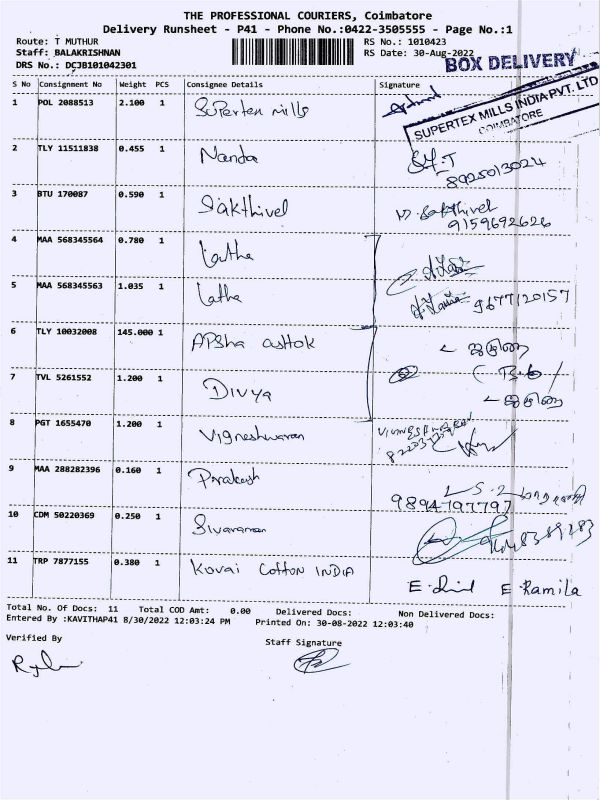 THE PROFESSIONAL COURIERS, Coimbatore
Delivery Runsheet - P41 - Phone No.:0422-3505555 - Page No.:1
Route: T MUTHUR RS No.: 1010423
Staff: BALAKRISHNAN RS Date: 30-Aug-2022
DRS No.: DCJB101042301
BOX DELIVERY
S No Consignment No Weight PCS Consignee Details Signature
1 POL 2088513 2.100 1 Superten mills
SUPERTEX MILLS INDIA PVT. LTD
COIMBATORE
2 TLY 11511838 0.455 1 Nanda
8925013024
3 BTU 170087 0.590 1 Sakthivel M. Sakthivel
9159692626
4 MAA 568345564 0.780 1 Latha
5 MAA 568345563 1.035 1 Latha 9677120157
6 TLY 10032008 145.000 1 APSha ashok
7 TVL 5261552 1.200 1 Divya
8 PGT 1655470 1.200 1 Vigneshwaran
9 MAA 288282396 0.160 1 Prakash
9894797797
10 CDM 50220369 0.250 1 Sivaraman
11 TRP 7877155 0.380 1 Kovai Cotton INDIA E Ramila
Total No. Of Docs: 11 Total COD Amt: 0.00 Delivered Docs: Non Delivered Docs:
Entered By :KAVITHAP41 8/30/2022 12:03:24 PM Printed On: 30-08-2022 12:03:40
Verified By Staff Signature